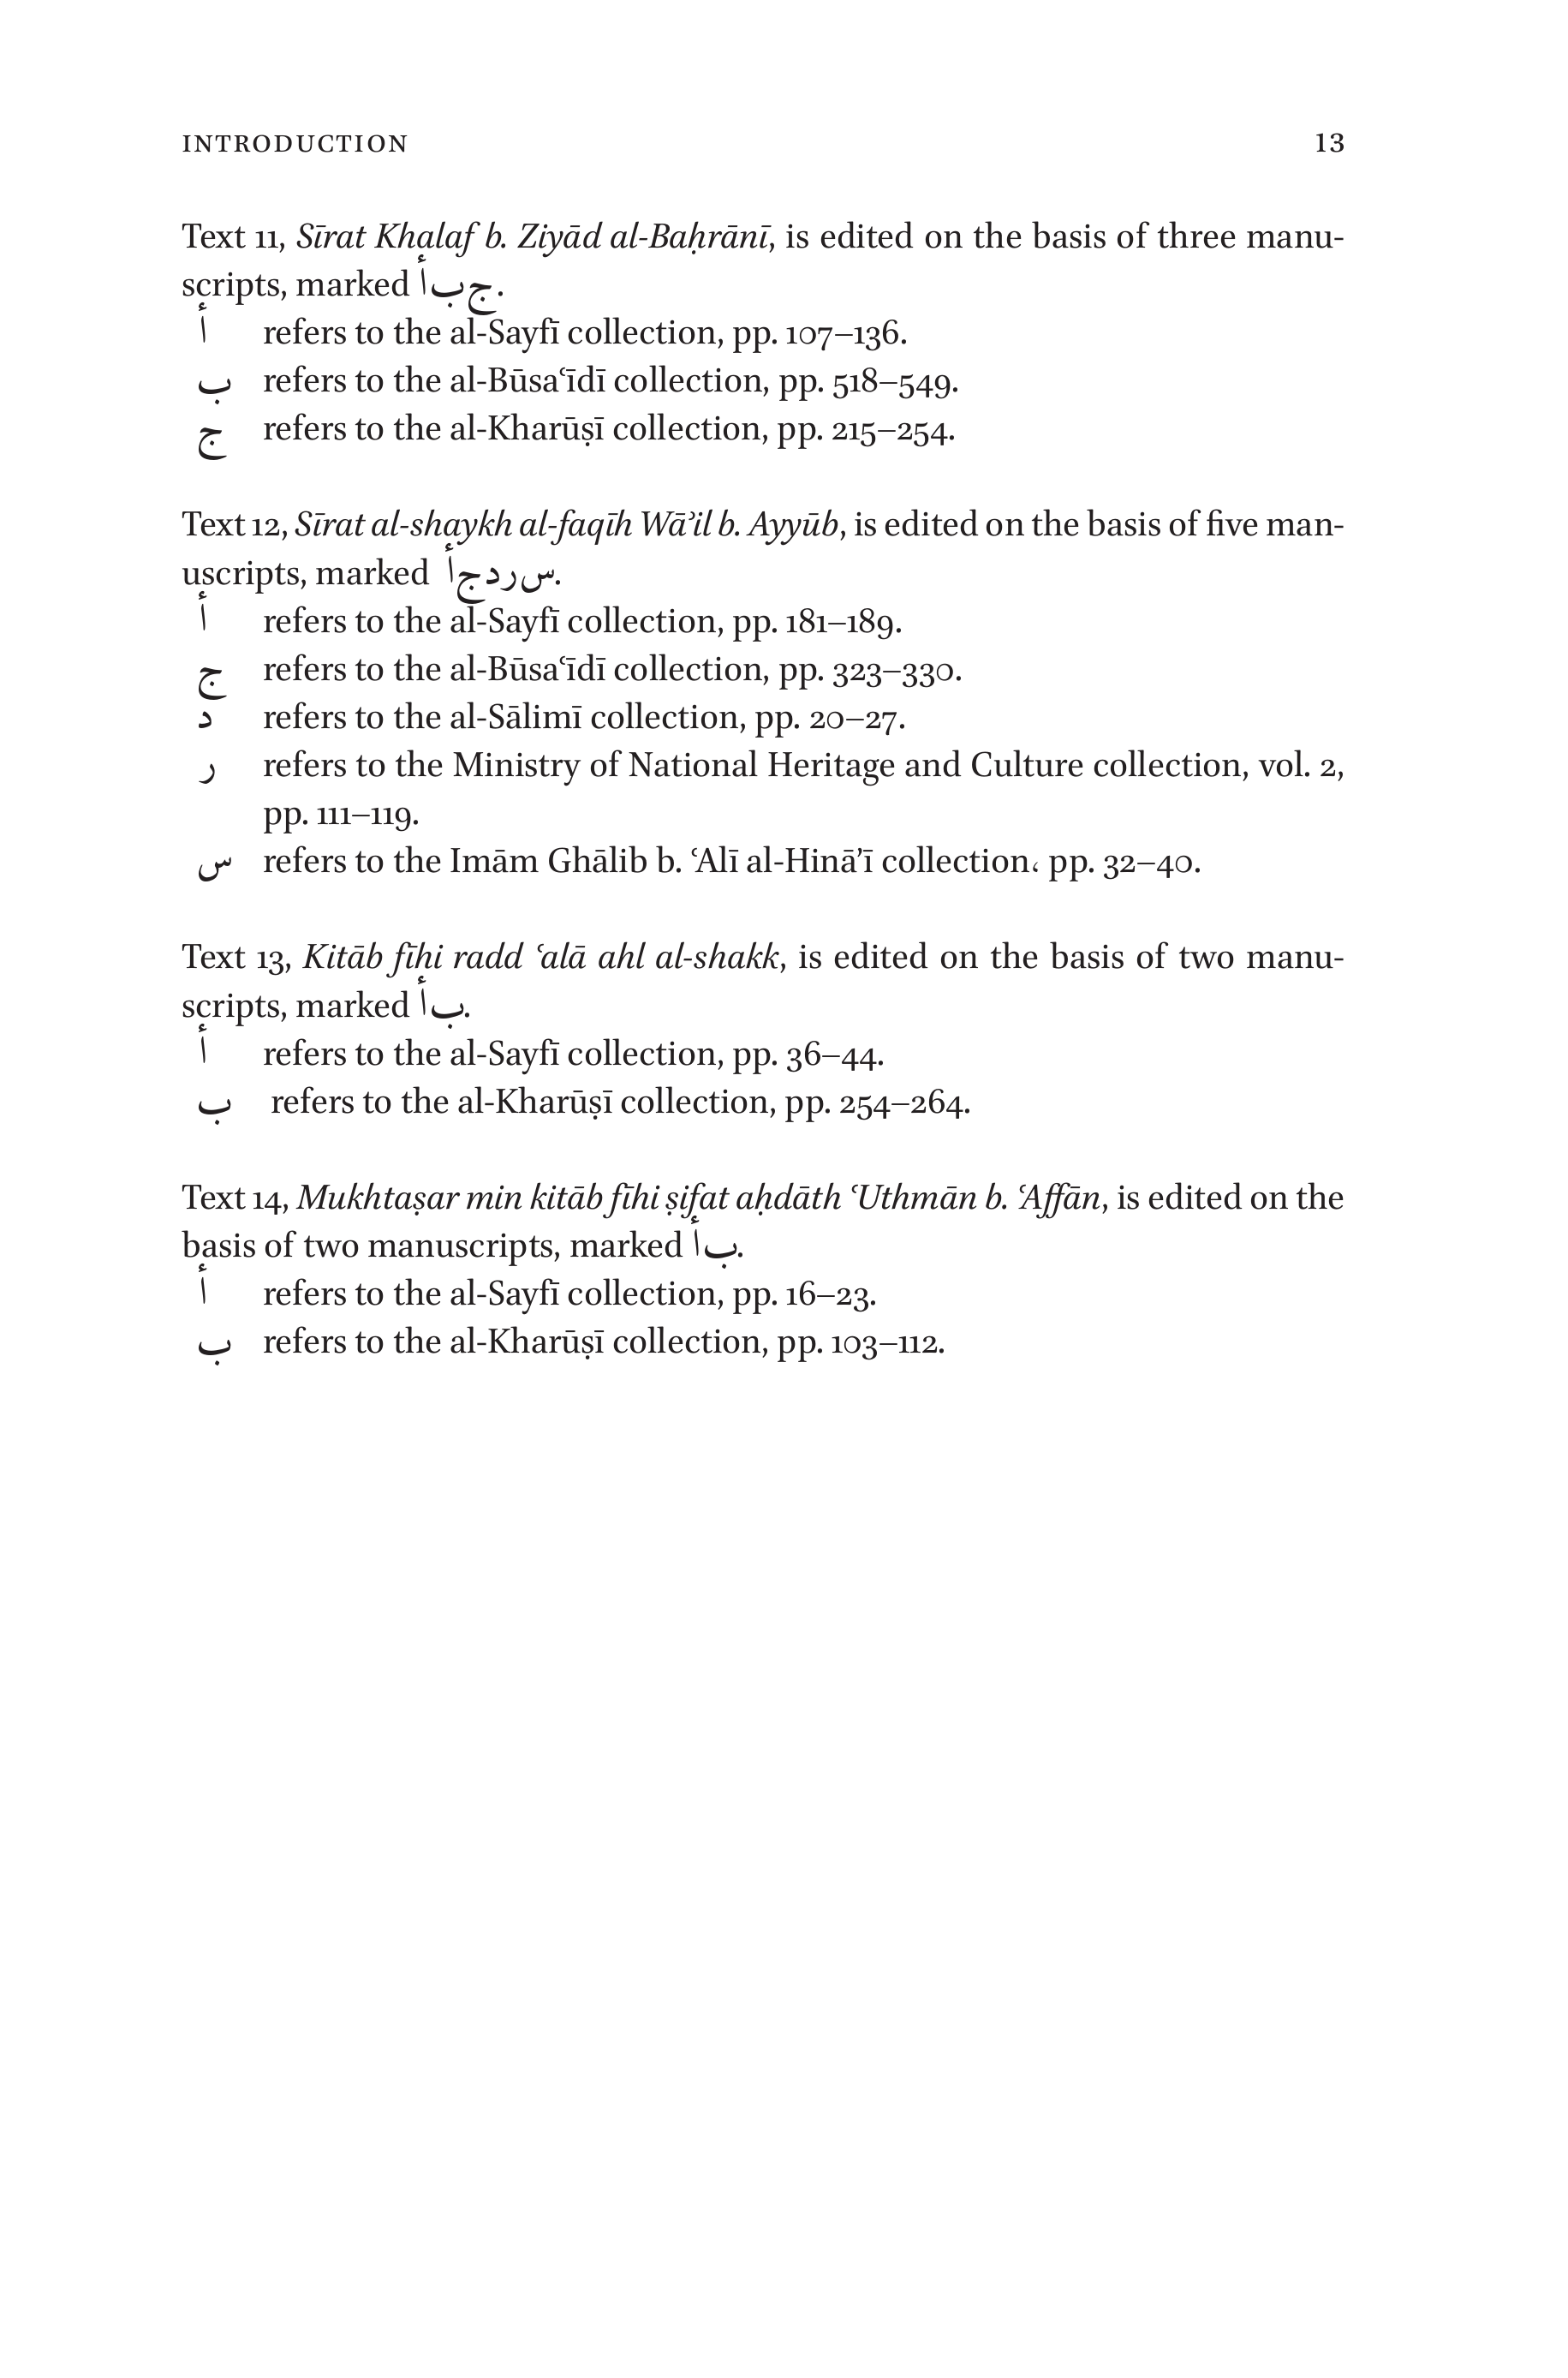 INTRODUCTION 13
Text 11, Sīrat Khalaf b. Ziyād al-Baḥrānī, is edited on the basis of three manu-
scripts, marked أ ب ج.
أ refers to the al-Sayfī collection, pp. 107–136.
ب refers to the al-Būsaʿīdī collection, pp. 518–549.
ج refers to the al-Kharūṣī collection, pp. 215–254.
Text 12, Sīrat al-shaykh al-faqīh Wāʾil b. Ayyūb, is edited on the basis of five man-
uscripts, marked أ ج د ر س.
أ refers to the al-Sayfī collection, pp. 181–189.
ج refers to the al-Būsaʿīdī collection, pp. 323–330.
د refers to the al-Sālimī collection, pp. 20–27.
ر refers to the Ministry of National Heritage and Culture collection, vol. 2,
pp. 111–119.
س refers to the Imām Ghālib b. ʿAlī al-Hināʾī collection، pp. 32–40.
Text 13, Kitāb fīhi radd ʿalā ahl al-shakk, is edited on the basis of two manu-
scripts, marked أ ب.
أ refers to the al-Sayfī collection, pp. 36–44.
ب refers to the al-Kharūṣī collection, pp. 254–264.
Text 14, Mukhtaṣar min kitāb fīhi ṣifat aḥdāth ʿUthmān b. ʿAffān, is edited on the
basis of two manuscripts, marked أ ب.
أ refers to the al-Sayfī collection, pp. 16–23.
ب refers to the al-Kharūṣī collection, pp. 103–112.